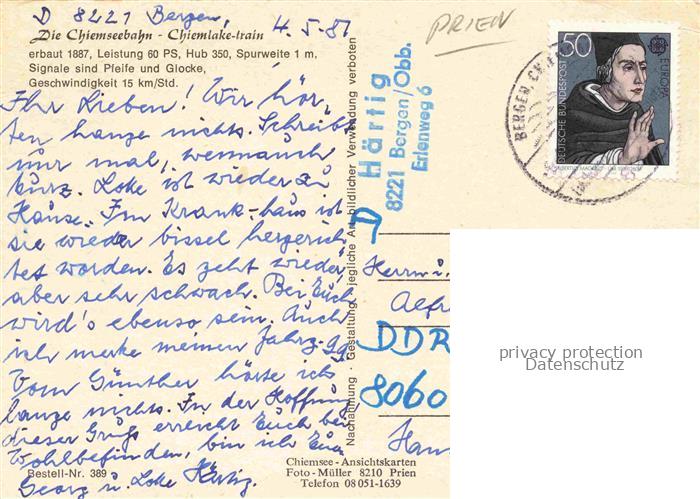 D 8221 Bergen, 4.5.81
Die Chiemseebahn - Chiemlake-train
erbaut 1887, Leistung 60 PS, Hub 350, Spurweite 1 m,
Signale sind Pfeife und Glocke,
Geschwindigkeit 15 km/Std.
Ihr Lieben! Wir hör-
ten lange nichts. Schreibt
nur mal, wennauch
kurz. Loke ist wieder zu
Hause. Im Krank-haus ist
sie wieder bissel hergerich-
tet worden. Es geht wieder,
aber sehr schwach. Bei Euch
wird's ebenso sein. Auch
ich merke meinen Jahrg.
Vom Günther hörte ich
lange nichts. In der Hoffnung
dieser Gruß erreicht Euch bei
Wohlbefinden, bin ich Euer
Georg u. Loke Härtig.
Bestell-Nr. 389
Nachahmung · Gestaltung · jegliche Art bildlicher Verwendung verboten
Chiemsee-Ansichtskarten
Foto-Müller 8210 Prien
Telefon 08051-1639
PRIEN
D Härtig
8221 Bergen/Obb.
Erlenweg 6
50
EUROPA
DEUTSCHE BUNDESPOST
BERGEN, CH
Herrn u.
Alfr
DDR
8060
privacy protection
Datenschutz